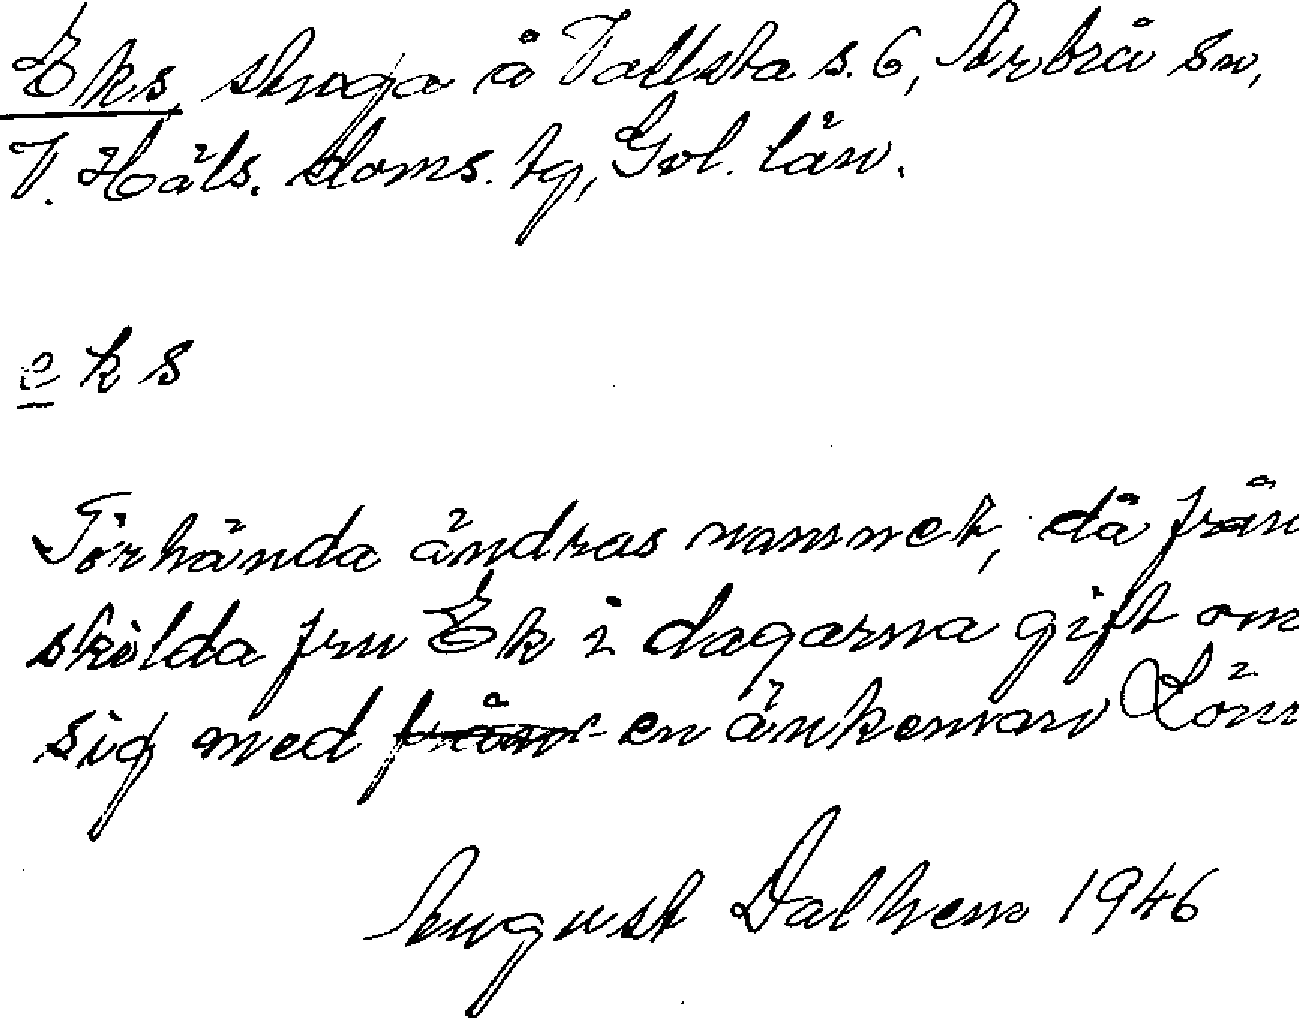 Eks, stuga å Vallsta s. 6, Arbrå sn,
V. Häls. doms. tg, Gvl. län.
e k s
Törhända ändras namnet, då från
skilda fru Ek i dagarna gift om
sig med en änkeman Lönn
August Dalhem 1946